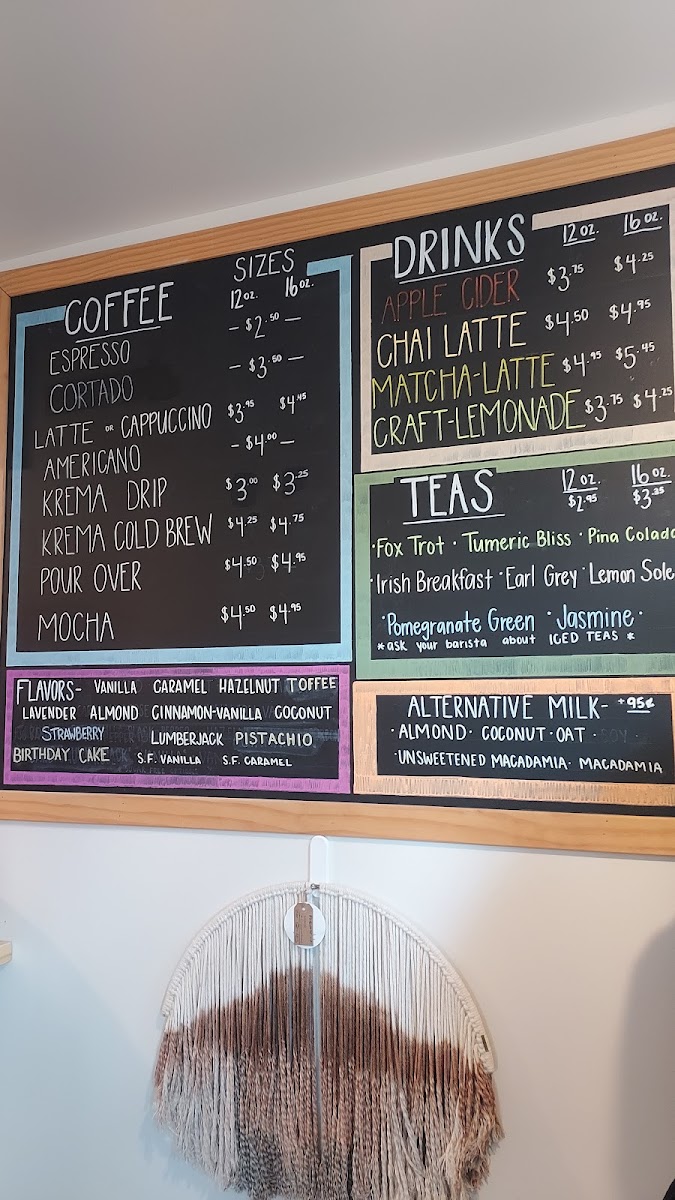 SIZES
COFFEE 12 oz. 16 oz.
ESPRESSO - $2.50 -
CORTADO - $3.50 -
LATTE OR CAPPUCCINO $3.95 $4.45
AMERICANO - $4.00 -
KREMA DRIP $3.00 $3.25
KREMA COLD BREW $4.25 $4.75
POUR OVER $4.50 $4.95
MOCHA $4.50 $4.95
FLAVORS- VANILLA CARAMEL HAZELNUT TOFFEE
LAVENDER ALMOND CINNAMON-VANILLA COCONUT
STRAWBERRY LUMBERJACK PISTACHIO
BIRTHDAY CAKE S.F. VANILLA S.F. CARAMEL
DRINKS 12 oz. 16 oz.
APPLE CIDER $3.75 $4.25
CHAI LATTE $4.50 $4.95
MATCHA-LATTE $4.95 $5.45
CRAFT-LEMONADE $3.75 $4.25
TEAS 12 oz. 16 oz.
$2.95 $3.25
·Fox Trot · Tumeric Bliss · Pina Colada
·Irish Breakfast ·Earl Grey ·Lemon Sole
·Pomegranate Green ·Jasmine·
*ask your barista about ICED TEAS *
ALTERNATIVE MILK- +95¢
·ALMOND· COCONUT ·OAT · SOY
·UNSWEETENED MACADAMIA· MACADAMIA